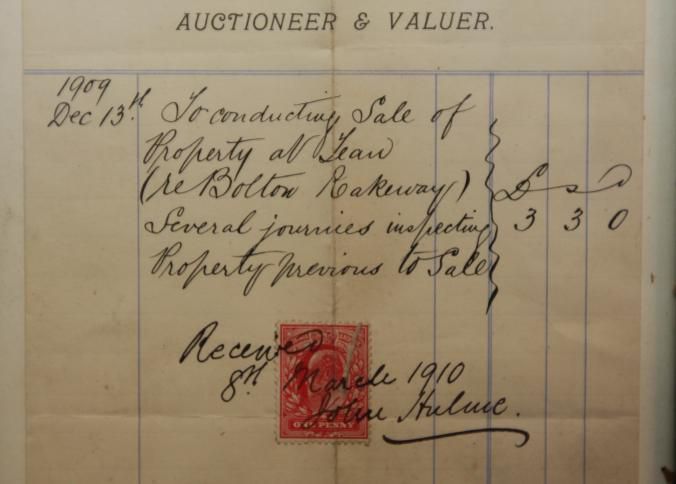 AUCTIONEER & VALUER.
1909
Dec 13th. To conducting Sale of
Property at Tean
(re Bolton Rakeway) £ s d
Several journies inspecting 3 3 0
Property previous to Sale
Received
8th March 1910
John Hulme.
ONE PENNY